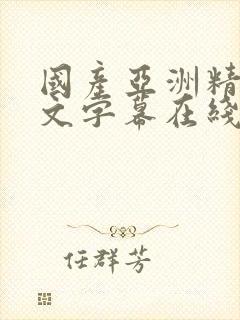 國產亞洲精
文字幕在綫
任群芳